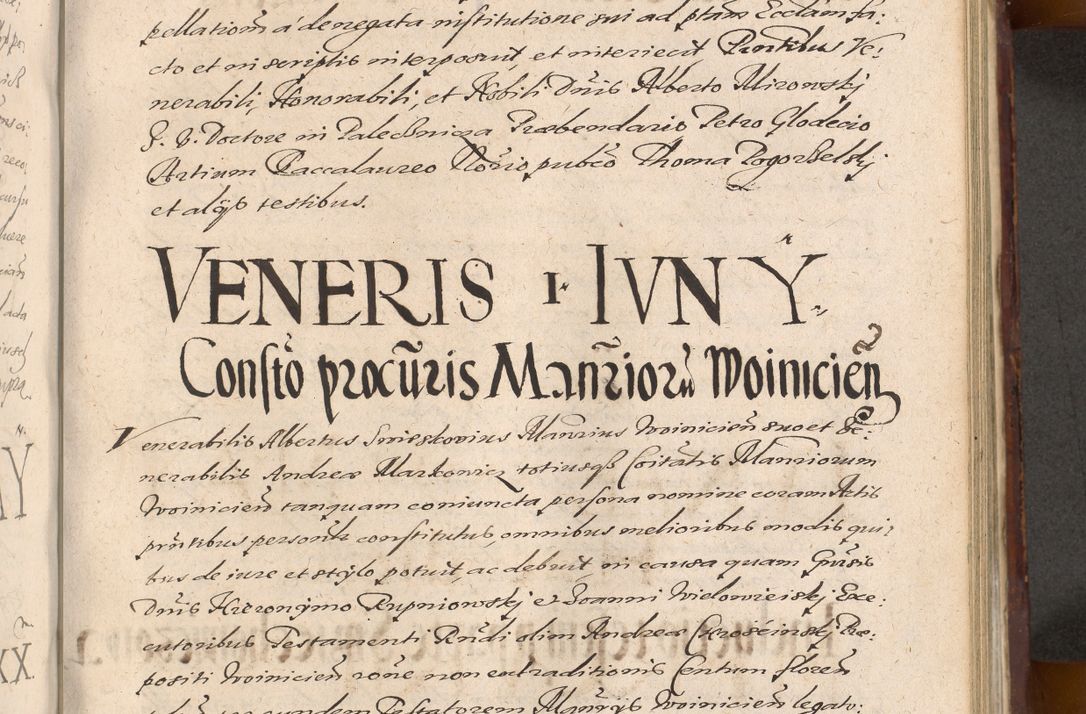 pellationem à denegata institutione sui ad ptam Ecclam fa:
cto et in scriptis interposuit, et interiecit Pntibus Ve:
nerabili, Honorabili, et Nobili Dnis Alberto Mirowskj
J. V. Doctore in Palecznicza Præbendario Petro Glodecio
Artium Baccalaureo Notrio pubco Thoma Pogorzelskj
et alijs testibus.
VENERIS 1 IVNY
Constõ procũris Manr̃iorũ Woinicieñ
Venerabilis Albertus Smieskovius Manrius Woiniciẽn suo et Ve:
nerabilis Andreæ Markowicz totiusq Coitatis Manriorum
Woinicien̄ tanquam coniuncta persona nomine coram Actis
pr̃ntibus personlr constitutus, omnibus melioribus modis qui
bus de iure et stylo potuit, ac debuit, in causa quam Gnrsis
Dnis Hieronymo Rupniowskj et Joanni Wielowieiskj Exe:
cutoribus Testamenti Rndi olim Andreæ Præ:
positi Woinicien̄ rõne non extraditionis Centum floren̄
eundem Testatorem Manrijs Woinicien̄ legato: